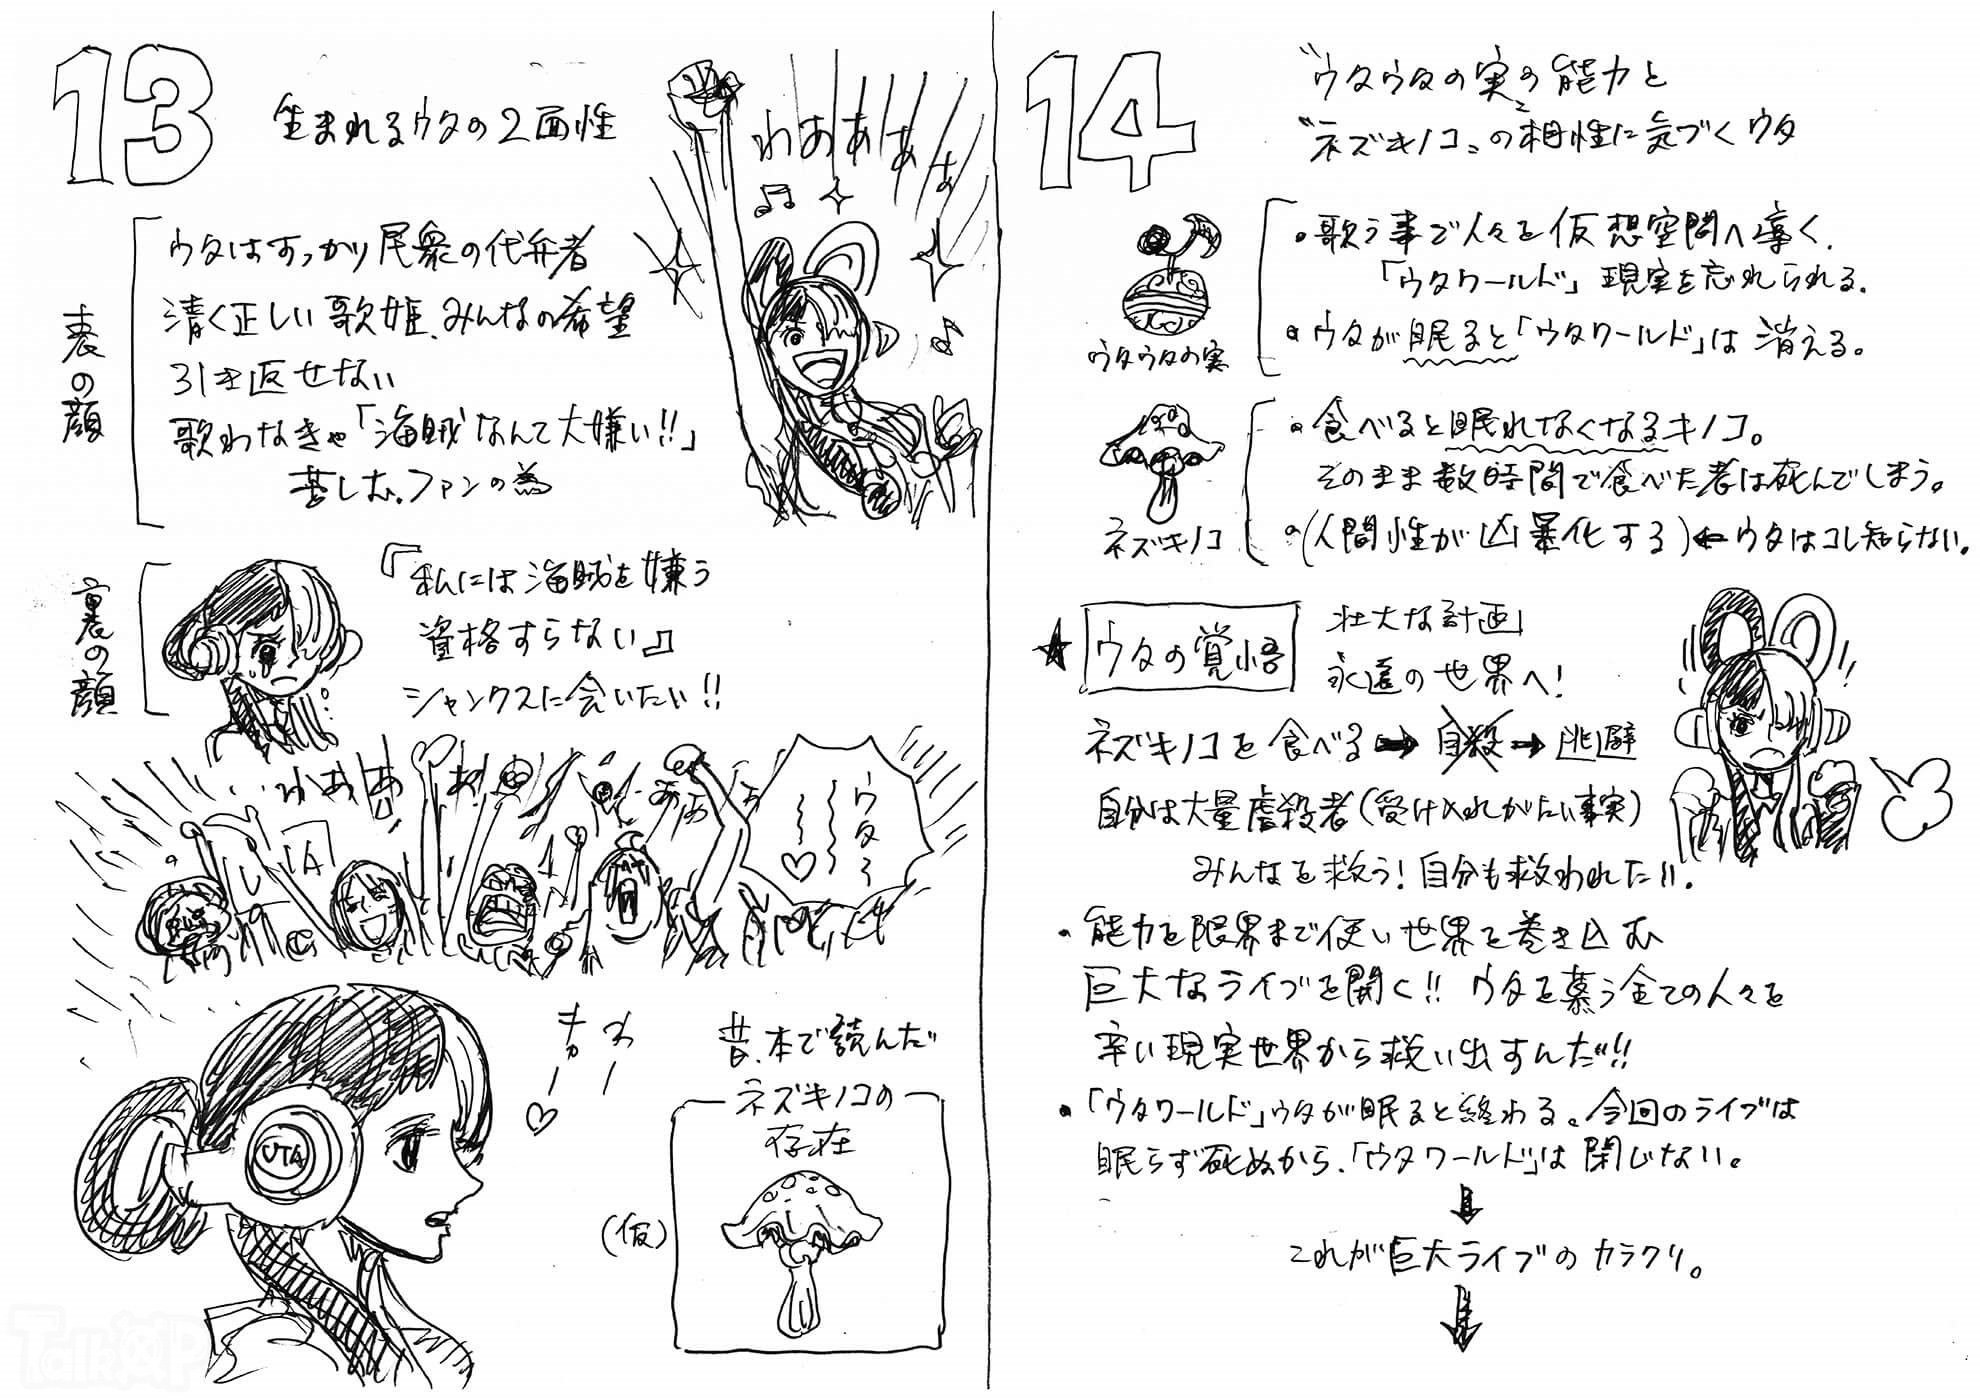 13
生まれるウタの2面性
わあああぁ
表の顔
ウタはすっかり民衆の代弁者
清く正しい歌姫、みんなの希望
引き返せない
歌わなきゃ「海賊なんて大嫌い!!」
苦しむ。ファンの為
裏の顔
『私には海賊を嫌う
資格すらない』
シャンクスに会いたい!!
わああぁ
ああぁ
ウタ〜
キャー
わー
UTA
昔、本で読んだ
ネズキノコの
存在
(仮)
14
“ウタウタの実”の能力と
“ネズキノコ”の相性に気づくウタ
ウタウタの実
•歌う事で人々を仮想空間へ導く.
「ウタワールド」現実を忘れられる.
•ウタが眠ると「ウタワールド」は消える。
ネズキノコ
•食べると眠れなくなるキノコ。
そのまま数時間で食べた者は死んでしまう。
•(人間性が凶暴化する)←ウタはコレ知らない.
★ウタの覚悟
壮大な計画
永遠の世界へ!
ネズキノコを食べる➡自殺➡逃避
自分は大量虐殺者(受け入れがたい事実)
みんなを救う!自分も救われたい.
•能力を限界まで使い世界を巻き込む
巨大なライブを開く!!ウタを慕う全ての人々を
辛い現実世界から救い出すんだ!!
•「ウタワールド」ウタが眠ると終わる。今回のライブは
眠らず死ぬから、「ウタワールド」は閉じない。
⬇
これが巨大ライブのカラクリ。
⬇
TalkOP